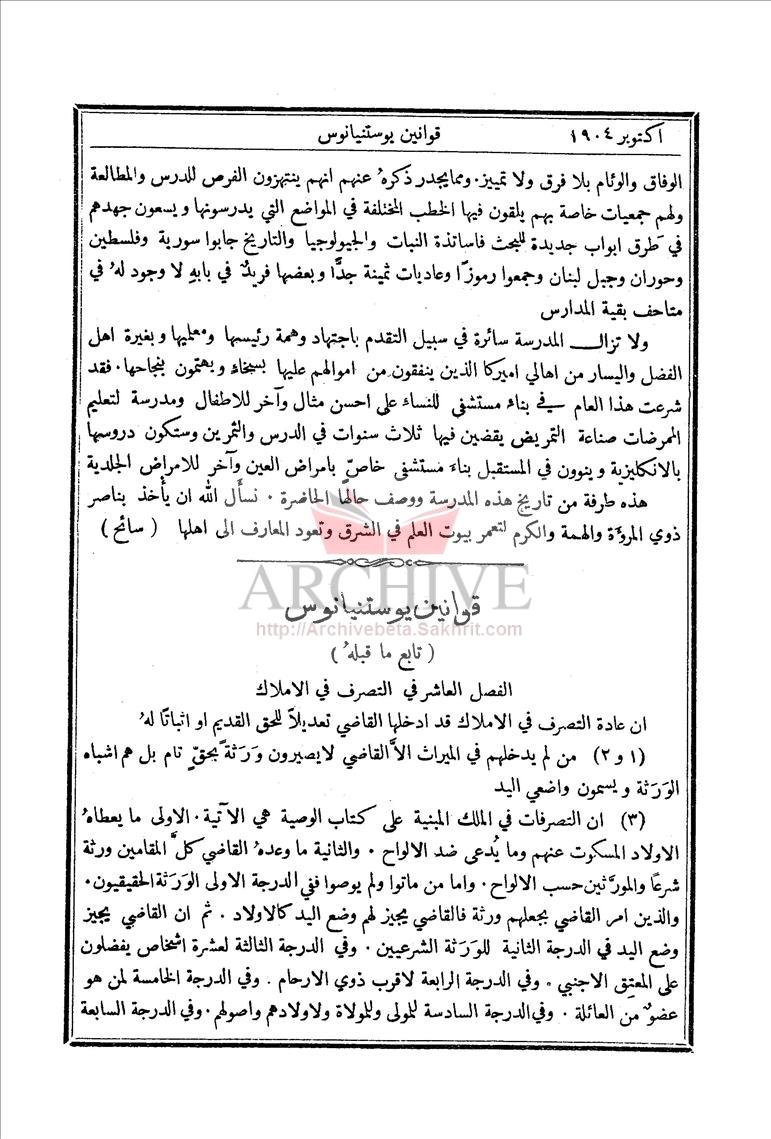 اكتوبر ١٩٠٤ قوانين يوستنيانوس
الوفاق والوئام بلا فرق ولا تمييز. ومما يجدر ذكرهُ عنهم انهم ينتهزون الفرص للدرس والمطالعة
ولهم جمعيات خاصة بهم يلقون فيها الخطب المختلفة في المواضع التي يدرسونها ويسعون جهدهم
في طرق ابواب جديدة للبحث فاساتذة النبات والجيولوجيا والتاريخ جابوا سورية وفلسطين
وحوران وجبل لبنان وجمعوا رموزًا وعاديات ثمينة جدًّا وبعضها فريدٌ في بابهِ لا وجود لهُ في
متاحف بقية المدارس
ولا تزال المدرسة سائرة في سبيل التقدم باجتهاد وهمة رئيسها ومعلميها وبغيرة اهل
الفضل واليسار من اهالي اميركا الذين ينفقون من اموالهم عليها بسخاء ويهتمون بنجاحها. فقد
شرعت هذا العام في بناء مستشفى للنساء على احسن مثال وآخر للاطفال ومدرسة لتعليم
الممرضات صناعة التمريض يقضين فيها ثلاث سنوات في الدرس والتمرين وستكون دروسها
بالانكليزية وينوون في المستقبل بناء مستشفى خاصّ بامراض العين وآخر للامراض الجلدية
هذه طرفة من تاريخ هذه المدرسة ووصف حالها الحاضرة. نسأل الله ان يأخذ بناصر
ذوي المروءة والهمة والكرم لتعمر بيوت العلم في الشرق وتعود المعارف الى اهلها (سائح)
ARCHIVE
قوانين يوستنيانوس
http://Archivebeta.Sakhrit.com
(تابع ما قبلهُ)
الفصل العاشر في التصرف في الاملاك
ان عادة التصرف في الاملاك قد ادخلها القاضي تعديلاً للحق القديم او اثباتًا لهُ
(١ و٢) من لم يدخلهم في الميراث الاَّ القاضي لا يصيرون وَرَثةً بحقّ تام بل هم اشباه
الوَرَثة ويسمون واضعي اليد
(٣) ان التصرفات في الملك المبنية على كتاب الوصية هي الآتية. الاولى ما يعطاهُ
الاولاد المسكوت عنهم وما يُدعى ضد الالواح. والثانية ما وعدهُ القاضي كلَّ المقامين ورثة
شرعًا والمورّثين حسب الالواح. واما من ماتوا ولم يوصوا ففي الدرجة الاولى الوَرَثة الحقيقيون.
والذين امر القاضي بجعلهم ورثة فالقاضي يجيز لهم وضع اليد كالاولاد. ثم ان القاضي يجيز
وضع اليد في الدرجة الثانية للوَرَثة الشرعيين. وفي الدرجة الثالثة لعشرة اشخاص يفضلون
على المعتِق الاجنبي. وفي الدرجة الرابعة لاقرب ذوي الارحام. وفي الدرجة الخامسة لمن هو
عضوٌ من العائلة. وفي الدرجة السادسة للمولى وللمولاة ولاولادهم واصولهم. وفي الدرجة السابعة